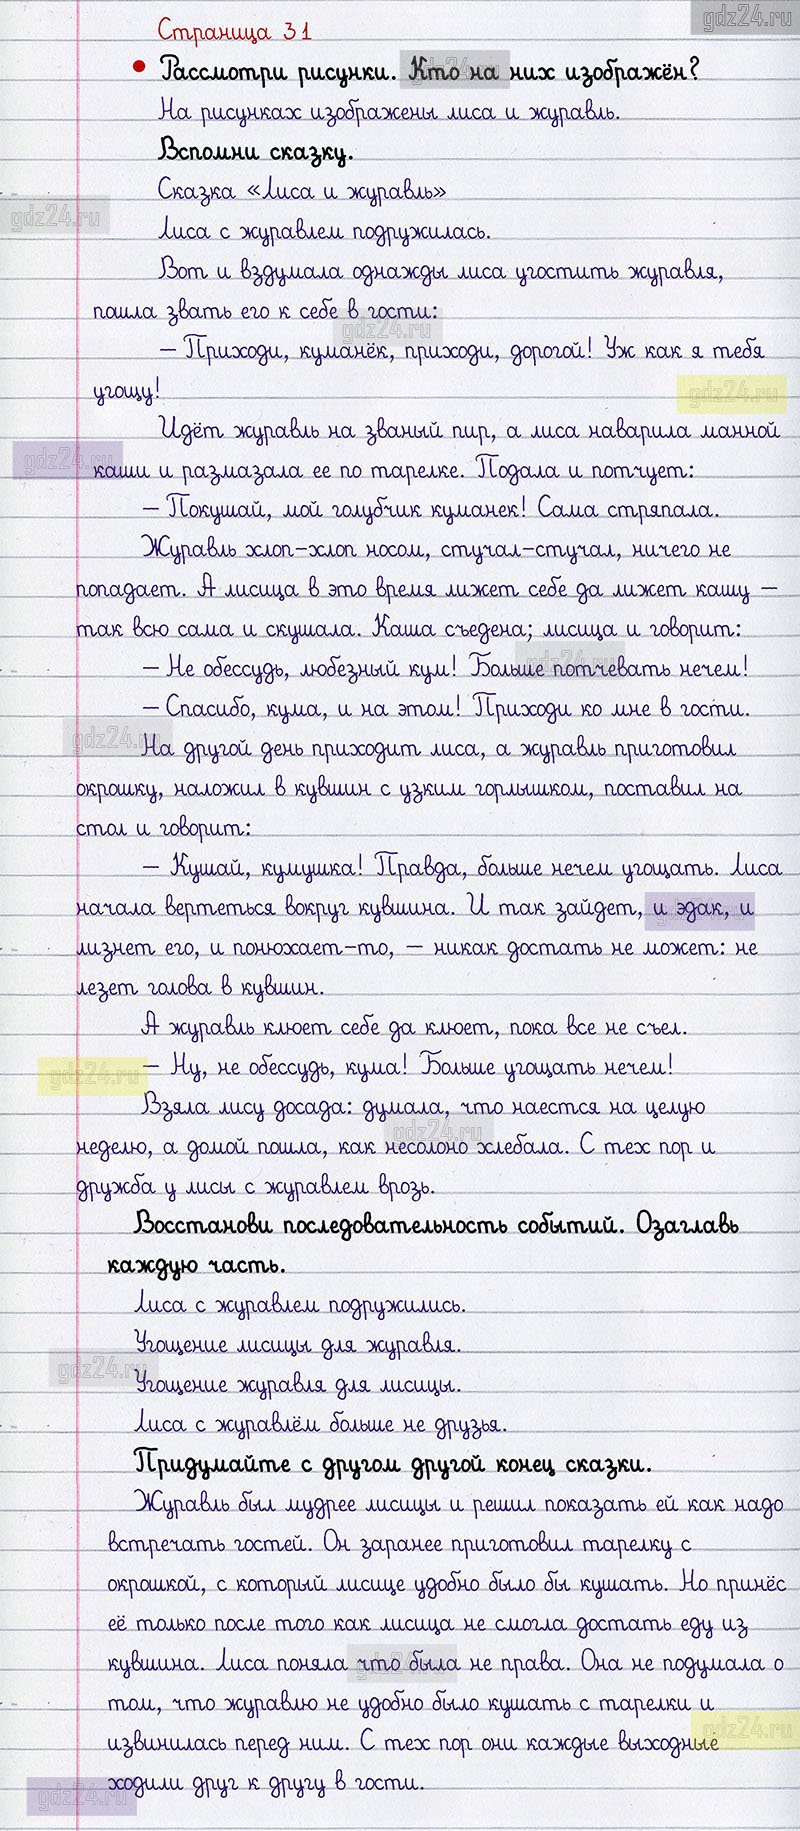 gdz24.ru
Страница 31
• Рассмотри рисунки. Кто на них изображён?
gdz24.ru
На рисунках изображены лиса и журавль.
Вспомни сказку.
Сказка «Лиса и журавль»
gdz24.ru
Лиса с журавлем подружилась.
Вот и вздумала однажды лиса угостить журавля,
пошла звать его к себе в гости:
gdz24.ru
– Приходи, куманёк, приходи, дорогой! Уж как я тебя
угощу!
gdz24.ru
Идёт журавль на званый пир, а лиса наварила манной
каши и размазала ее по тарелке. Подала и потчует:
gdz24.ru
– Покушай, мой голубчик куманек! Сама стряпала.
Журавль хлоп-хлоп носом, стучал-стучал, ничего не
попадает. А лисица в это время лижет себе да лижет кашу –
так всю сама и скушала. Каша съедена; лисица и говорит:
– Не обессудь, любезный кум! Больше потчевать нечем!
gdz24.ru
– Спасибо, кума, и на этом! Приходи ко мне в гости.
gdz24.ru
На другой день приходит лиса, а журавль приготовил
окрошку, наложил в кувшин с узким горлышком, поставил на
стол и говорит:
– Кушай, кумушка! Правда, больше нечем угощать. Лиса
начала вертеться вокруг кувшина. И так зайдет, и эдак, и
gdz24.ru
лизнет его, и понюхает-то, – никак достать не может: не
лезет голова в кувшин.
А журавль клюет себе да клюет, пока все не съел.
– Ну, не обессудь, кума! Больше угощать нечем!
gdz24.ru
Взяла лису досада: думала, что наестся на целую
gdz24.ru
неделю, а домой пошла, как несолоно хлебала. С тех пор и
дружба у лисы с журавлем врозь.
Восстанови последовательность событий. Озаглавь
каждую часть.
Лиса с журавлем подружились.
Угощение лисицы для журавля.
gdz24.ru
Угощение журавля для лисицы.
Лиса с журавлём больше не друзья.
Придумайте с другом другой конец сказки.
Журавль был мудрее лисицы и решил показать ей как надо
встречать гостей. Он заранее приготовил тарелку с
окрошкой, с который лисице удобно было бы кушать. Но принёс
её только после того как лисица не смогла достать еду из
кувшина. Лиса поняла что была не права. Она не подумала о
gdz24.ru
том, что журавлю не удобно было кушать с тарелки и
gdz24.ru
извинилась перед ним. С тех пор они каждые выходные
ходили друг к другу в гости.
gdz24.ru